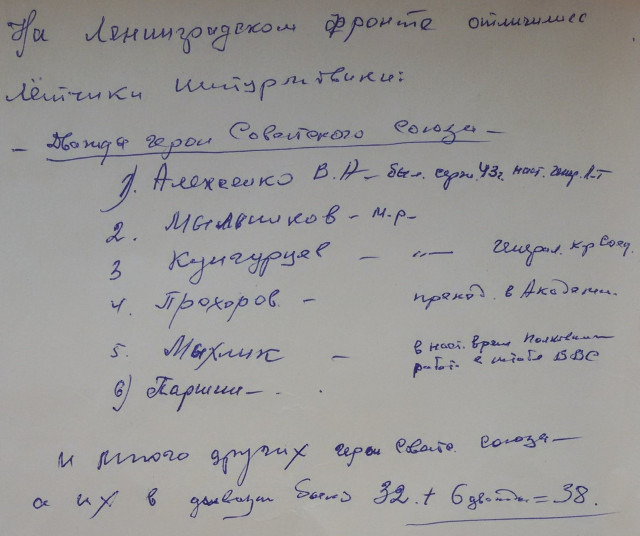 На Ленинградском фронте отличились
Лётчики штурмовики:
— Дважды герои Советского Союза —
1) Алексеенко В.А — был. серж. 43г. наст. генер. л-т
2. Мыльников - м.р-
3 Кунгурцев — —"— генерал. к-р Соед.
4. Прохоров — препод. в Академии.
5. Мыхлик — в наст. время Полковник
работ. в штабе ВВС
6) Паршин — .
и много других герои Совето. Союза —
а их в дивизии было 32 + 6 дважды = 38.